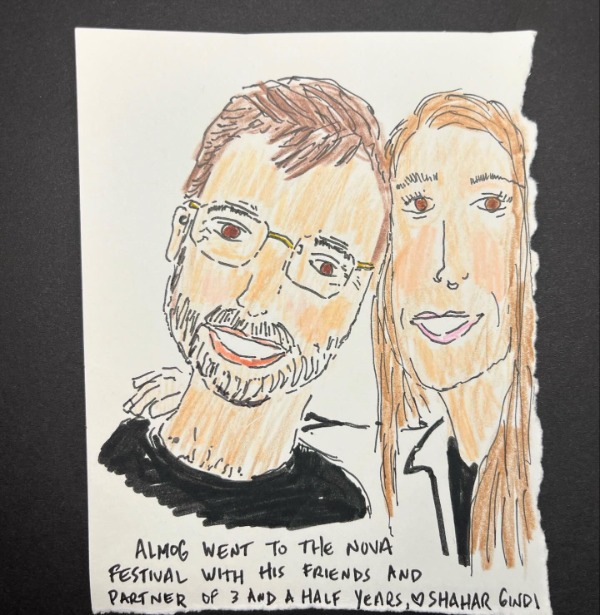 ALMOG WENT TO THE NOVA
FESTIVAL WITH HIS FRIENDS AND
PARTNER OF 3 AND A HALF YEARS, ♡ SHAHAR GINDI